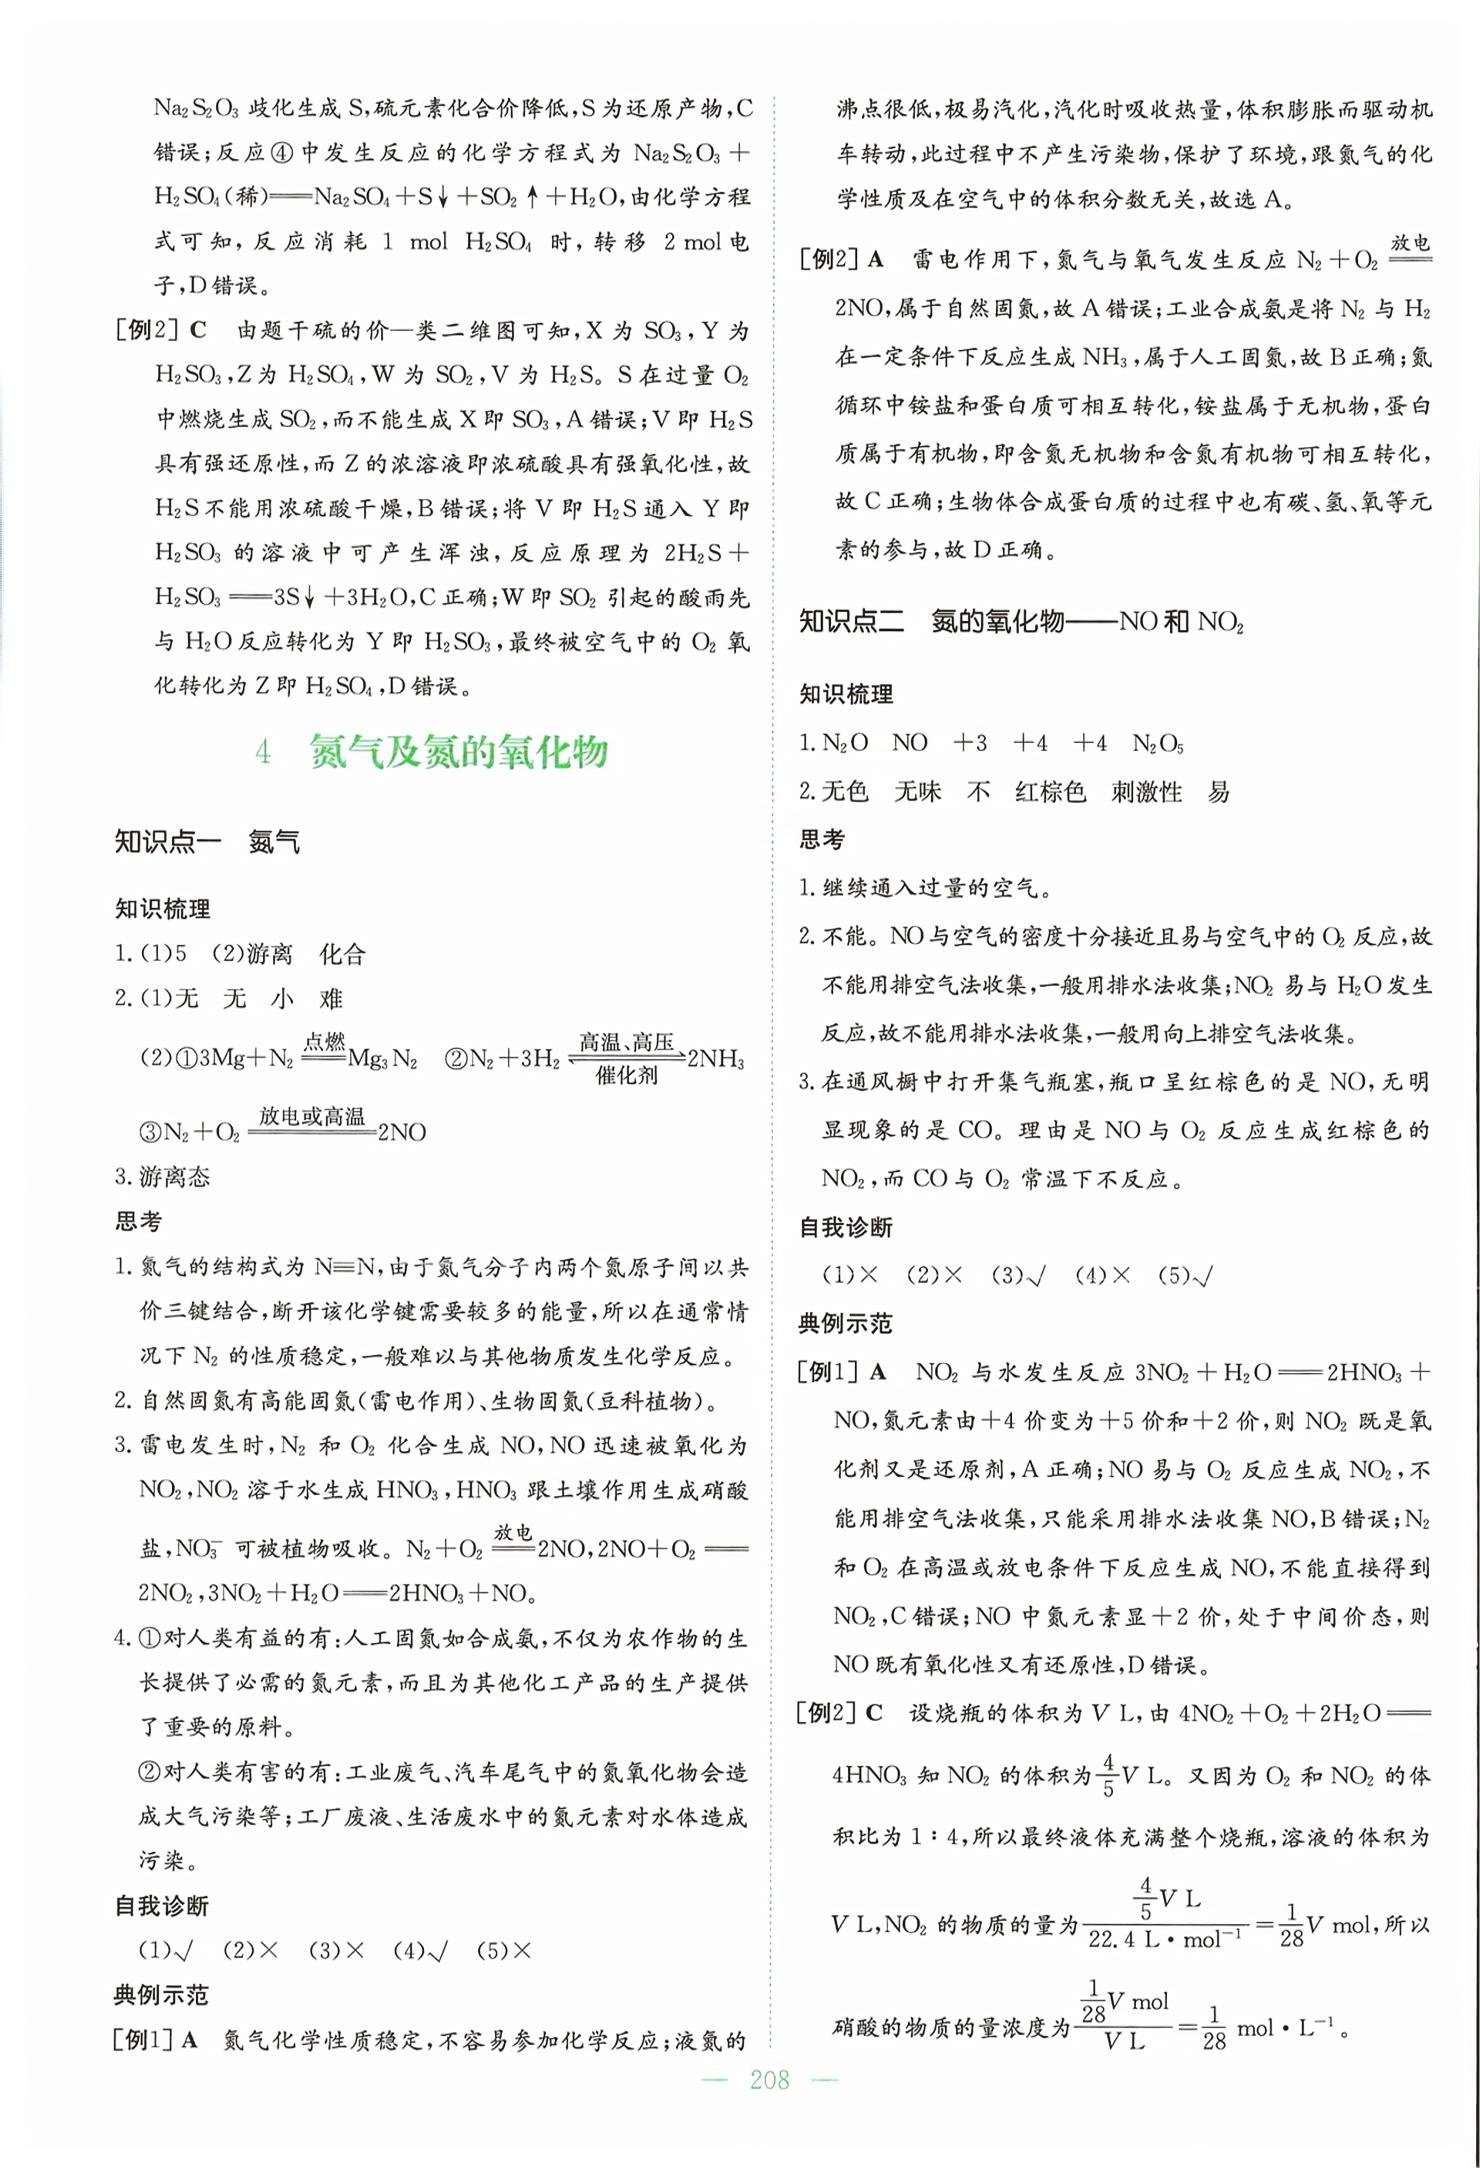 Na₂S₂O₃ 歧化生成 S,硫元素化合价降低,S 为还原产物,C
错误;反应④中发生反应的化学方程式为 Na₂S₂O₃＋
H₂SO₄(稀)══Na₂SO₄＋S↓＋SO₂↑＋H₂O,由化学方程
式可知,反应消耗 1 mol H₂SO₄ 时,转移 2 mol 电
子,D 错误。
[例2] C 由题干硫的价—类二维图可知,X 为 SO₃,Y 为
H₂SO₃,Z 为 H₂SO₄,W 为 SO₂,V 为 H₂S。S 在过量 O₂
中燃烧生成 SO₂,而不能生成 X 即 SO₃,A 错误;V 即 H₂S
具有强还原性,而 Z 的浓溶液即浓硫酸具有强氧化性,故
H₂S 不能用浓硫酸干燥,B 错误;将 V 即 H₂S 通入 Y 即
H₂SO₃ 的溶液中可产生浑浊,反应原理为 2H₂S＋
H₂SO₃══3S↓＋3H₂O,C 正确;W 即 SO₂ 引起的酸雨先
与 H₂O 反应转化为 Y 即 H₂SO₃,最终被空气中的 O₂ 氧
化转化为 Z 即 H₂SO₄,D 错误。
4 氮气及氮的氧化物
知识点一 氮气
知识梳理
1. (1)5 (2)游离 化合
2. (1)无 无 小 难
(2)①3Mg＋N₂ ══点燃══ Mg₃N₂ ②N₂＋3H₂ ⇌(高温、高压/催化剂) 2NH₃
③N₂＋O₂ ══放电或高温══ 2NO
3. 游离态
思考
1. 氮气的结构式为 N≡N,由于氮气分子内两个氮原子间以共
价三键结合,断开该化学键需要较多的能量,所以在通常情
况下 N₂ 的性质稳定,一般难以与其他物质发生化学反应。
2. 自然固氮有高能固氮(雷电作用)、生物固氮(豆科植物)。
3. 雷电发生时,N₂ 和 O₂ 化合生成 NO,NO 迅速被氧化为
NO₂,NO₂ 溶于水生成 HNO₃,HNO₃ 跟土壤作用生成硝酸
盐,NO₃⁻ 可被植物吸收。N₂＋O₂ ══放电══ 2NO,2NO＋O₂══
2NO₂,3NO₂＋H₂O══2HNO₃＋NO。
4. ①对人类有益的有:人工固氮如合成氨,不仅为农作物的生
长提供了必需的氮元素,而且为其他化工产品的生产提供
了重要的原料。
②对人类有害的有:工业废气、汽车尾气中的氮氧化物会造
成大气污染等;工厂废液、生活废水中的氮元素对水体造成
污染。
自我诊断
(1)√ (2)× (3)× (4)√ (5)×
典例示范
[例1] A 氮气化学性质稳定,不容易参加化学反应;液氮的
沸点很低,极易汽化,汽化时吸收热量,体积膨胀而驱动机
车转动,此过程中不产生污染物,保护了环境,跟氮气的化
学性质及在空气中的体积分数无关,故选 A。
[例2] A 雷电作用下,氮气与氧气发生反应 N₂＋O₂ ══放电══
2NO,属于自然固氮,故 A 错误;工业合成氨是将 N₂ 与 H₂
在一定条件下反应生成 NH₃,属于人工固氮,故 B 正确;氮
循环中铵盐和蛋白质可相互转化,铵盐属于无机物,蛋白
质属于有机物,即含氮无机物和含氮有机物可相互转化,
故 C 正确;生物体合成蛋白质的过程中也有碳、氢、氧等元
素的参与,故 D 正确。
知识点二 氮的氧化物——NO 和 NO₂
知识梳理
1. N₂O NO ＋3 ＋4 ＋4 N₂O₅
2. 无色 无味 不 红棕色 刺激性 易
思考
1. 继续通入过量的空气。
2. 不能。NO 与空气的密度十分接近且易与空气中的 O₂ 反应,故
不能用排空气法收集,一般用排水法收集;NO₂ 易与 H₂O 发生
反应,故不能用排水法收集,一般用向上排空气法收集。
3. 在通风橱中打开集气瓶塞,瓶口呈红棕色的是 NO,无明
显现象的是 CO。理由是 NO 与 O₂ 反应生成红棕色的
NO₂,而 CO 与 O₂ 常温下不反应。
自我诊断
(1)× (2)× (3)√ (4)× (5)√
典例示范
[例1] A NO₂ 与水发生反应 3NO₂＋H₂O══2HNO₃＋
NO,氮元素由＋4 价变为＋5 价和＋2 价,则 NO₂ 既是氧
化剂又是还原剂,A 正确;NO 易与 O₂ 反应生成 NO₂,不
能用排空气法收集,只能采用排水法收集 NO,B 错误;N₂
和 O₂ 在高温或放电条件下反应生成 NO,不能直接得到
NO₂,C 错误;NO 中氮元素显＋2 价,处于中间价态,则
NO 既有氧化性又有还原性,D 错误。
[例2] C 设烧瓶的体积为 V L,由 4NO₂＋O₂＋2H₂O══
4HNO₃ 知 NO₂ 的体积为 4/5 V L。又因为 O₂ 和 NO₂ 的体
积比为 1∶4,所以最终液体充满整个烧瓶,溶液的体积为
V L,NO₂ 的物质的量为 (4/5 V L)/(22.4 L·mol⁻¹)＝1/28 V mol,所以
硝酸的物质的量浓度为 (1/28 V mol)/(V L)＝1/28 mol·L⁻¹。
— 208 —